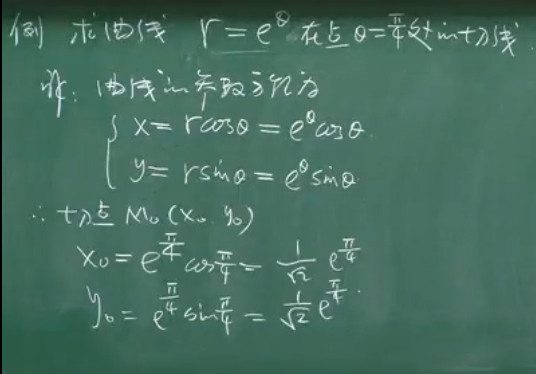 例 求曲线 r = e^θ 在点 θ = π/4 处的切线
解: 曲线的参数方程为
{ x = r cosθ = e^θ cosθ.
y = r sinθ = e^θ sinθ.
∴ 切点 M₀ (x₀, y₀)
x₀ = e^(π/4) cos π/4 = 1/√2 e^(π/4)
y₀ = e^(π/4) sin π/4 = 1/√2 e^(π/4).